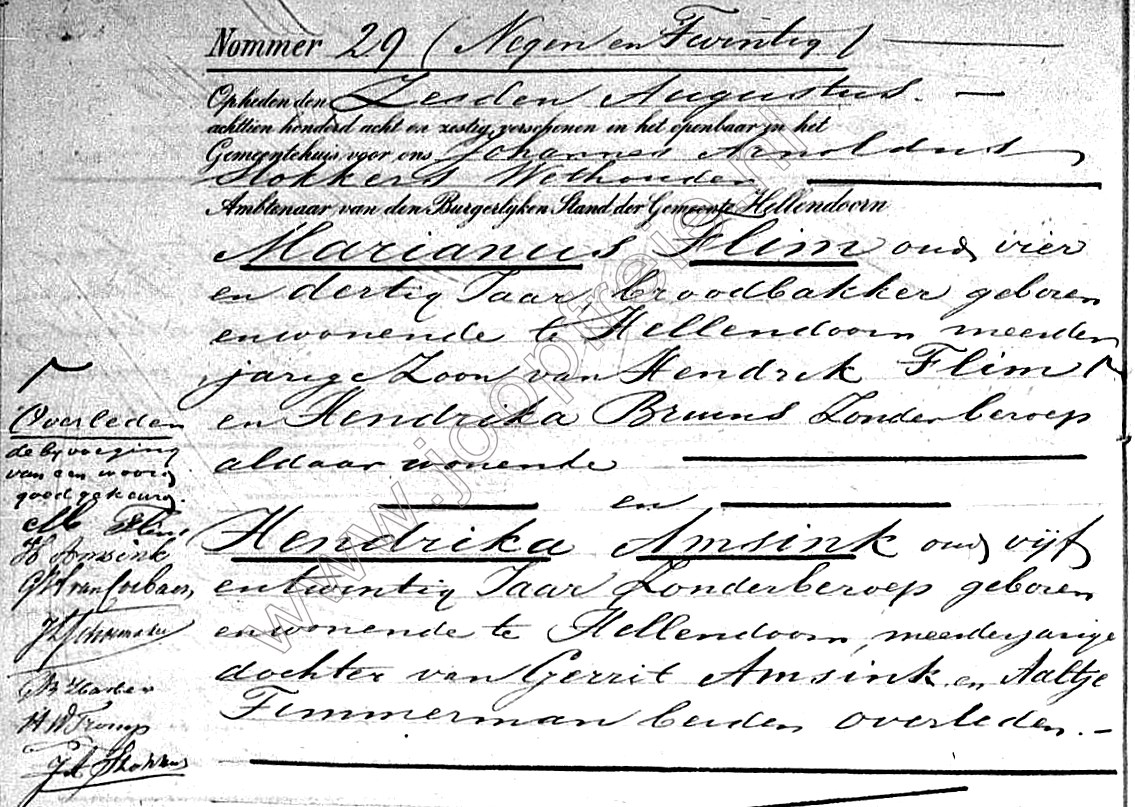 Nommer 29 (Negen en Twintig)
Opheden den Zesden Augustus.
achttien honderd acht en zestig, verschenen in het openbaar in het
Gemeentehuis voor ons Johannes Arnoldus
Stokkers Wethouder
Ambtenaar van den Burgerlyken Stand der Gemeente Hellendoorn
Marianus Flim oud vier
en dertig Jaar, broodbakker geboren
en wonende te Hellendoorn meerder
jarige Zoon van Hendrik Flim
en Hendrika Bruins Zonder beroep
aldaar wonende
en
Hendrika Amsink oud vijf
en twintig Jaar Zonder beroep geboren
en wonende te Hellendoorn, meerderjarige
dochter van Gerrit Amsink en Aaltje
Timmerman beiden overleden.
Overleden
de byvoeging
van een woord
goedgekeurd.
M Flim
H Amsink
J Schumaker
HW Tromp
JA Stokkers
www.joopfreisen.nl